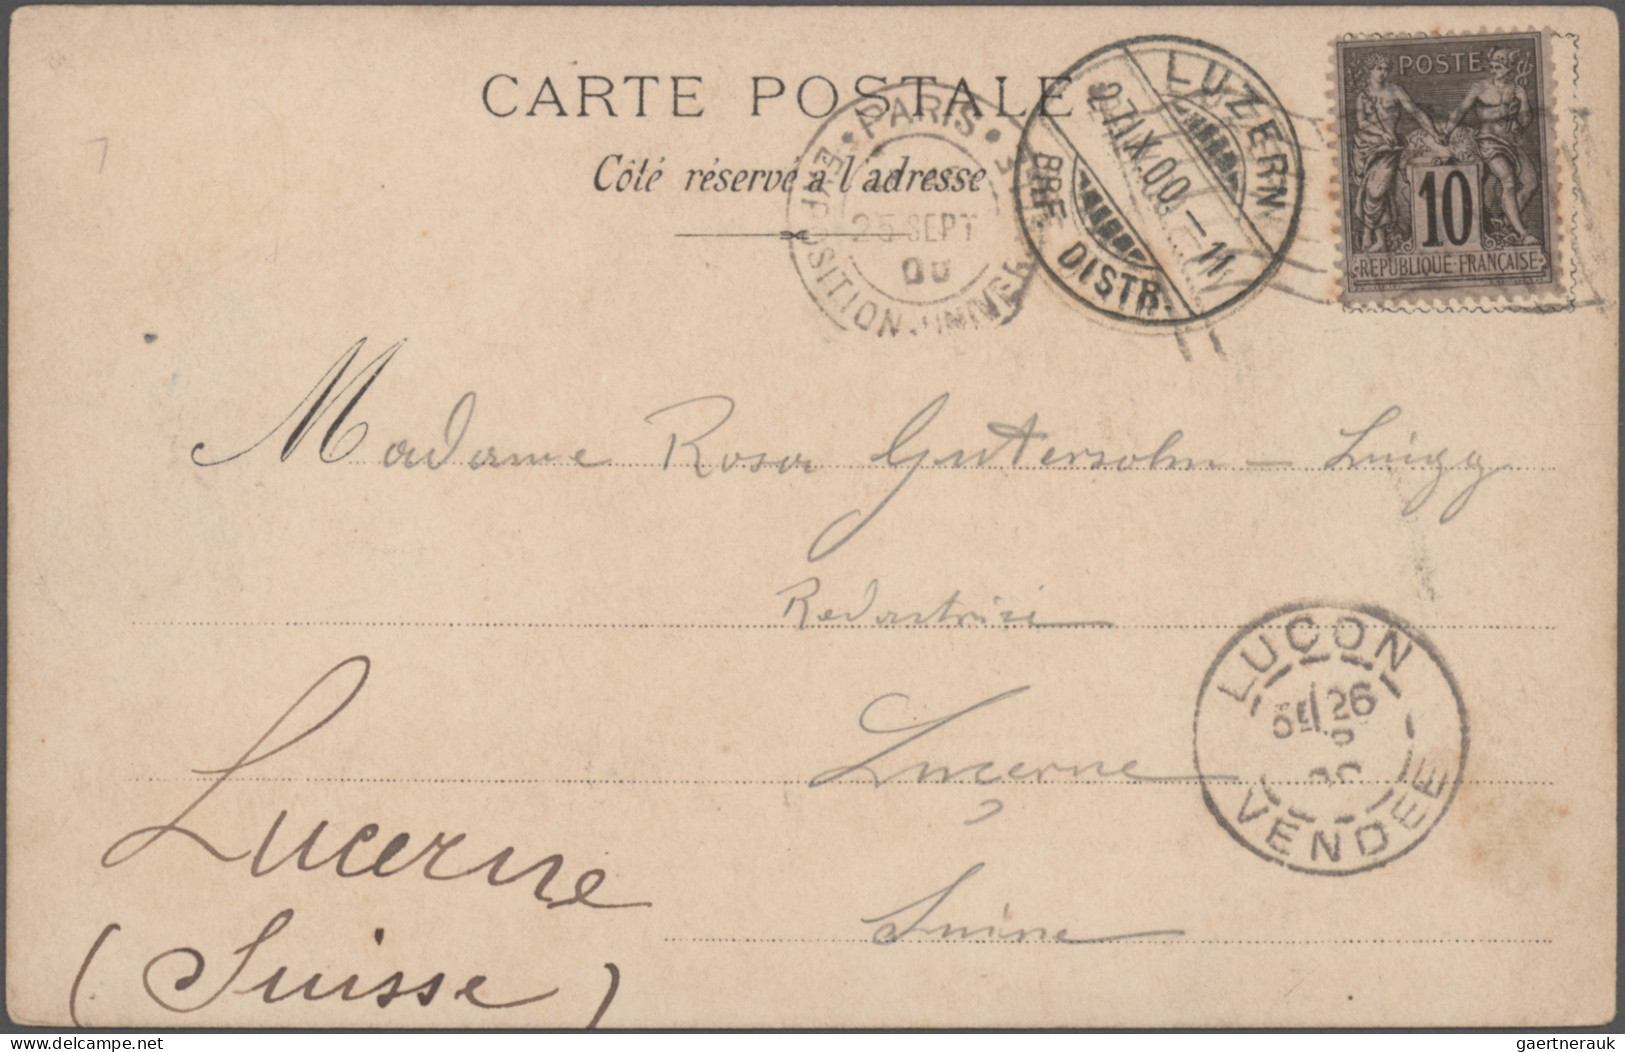 CARTE POSTALE
Côté réservé à l'adresse
PARIS
EXPOSITION UNIVERSELLE
25 SEPT
00
LUZERN
27.IX.00.-11
BRF. DISTR.
POSTE
10
REPUBLIQUE FRANÇAISE
Madame Rosa Gutersohn - Lingg
Redactrice
Luçerne
Suisse
LUÇON
26
VENDEE
Lucerne
(Suisse)
delcampe.net
gaertnerauk